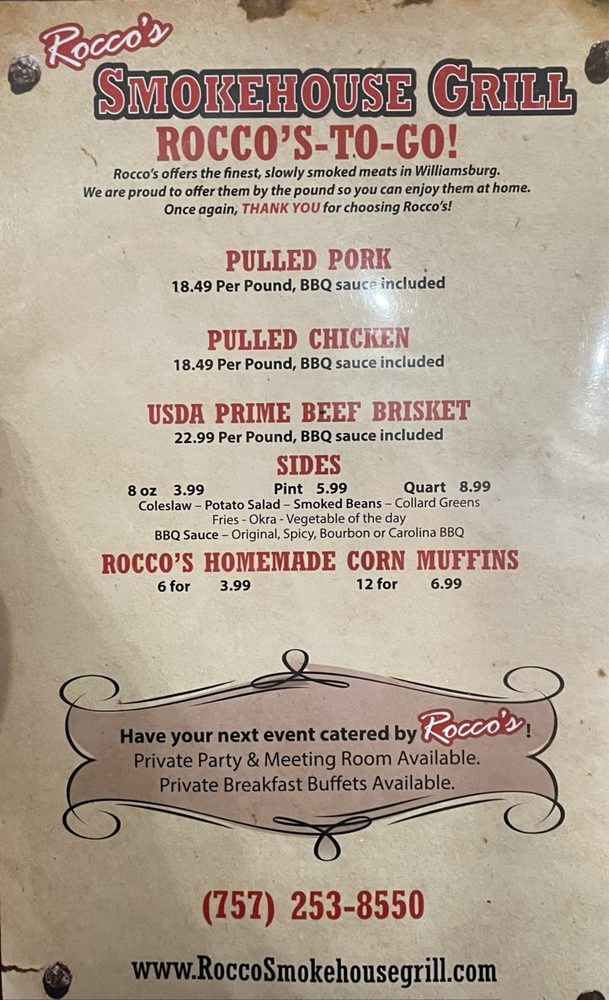 Rocco's
SMOKEHOUSE GRILL
ROCCO'S-TO-GO!
Rocco's offers the finest, slowly smoked meats in Williamsburg.
We are proud to offer them by the pound so you can enjoy them at home.
Once again, THANK YOU for choosing Rocco's!
PULLED PORK
18.49 Per Pound, BBQ sauce included
PULLED CHICKEN
18.49 Per Pound, BBQ sauce included
USDA PRIME BEEF BRISKET
22.99 Per Pound, BBQ sauce included
SIDES
8 oz 3.99 Pint 5.99 Quart 8.99
Coleslaw – Potato Salad – Smoked Beans – Collard Greens
Fries - Okra - Vegetable of the day
BBQ Sauce – Original, Spicy, Bourbon or Carolina BBQ
ROCCO'S HOMEMADE CORN MUFFINS
6 for 3.99 12 for 6.99
Have your next event catered by Rocco's!
Private Party & Meeting Room Available.
Private Breakfast Buffets Available.
(757) 253-8550
www.RoccoSmokehousegrill.com